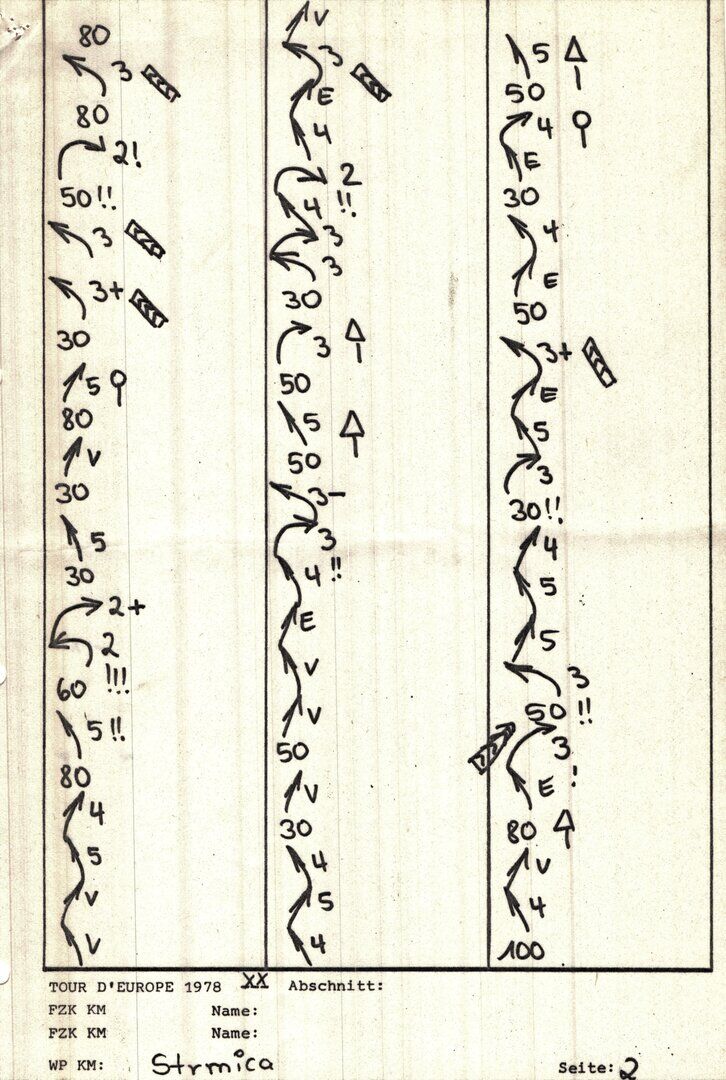 80
3
80
2!
50!!
3
3+
30
5
80
V
30
5
30
2+
2
60 !!!
5!!
80
4
5
V
V
V
3
E
4
2
4 !!
3
3
30
3
50
5
50
3-
3
4 !!
E
V
V
50
V
30
4
5
4
5
50
4
E
30
4
E
50
3+
E
5
3
30!!
4
5
5
3
50 !!
3
E !
80
V
4
100
TOUR D'EUROPE 1978 XX Abschnitt:
FZK KM Name:
FZK KM Name:
WP KM: Strmica Seite: 2